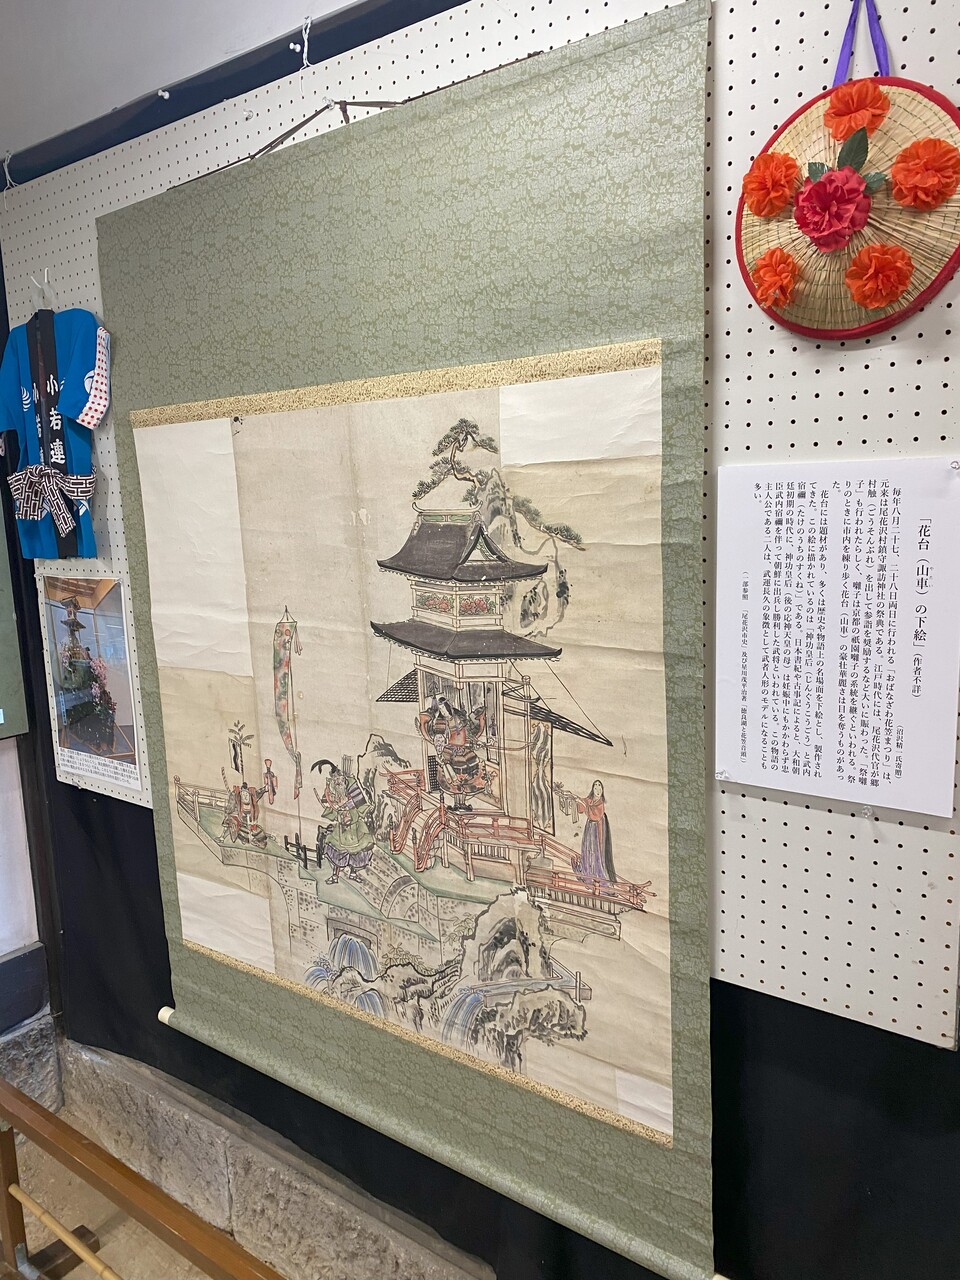 「花台（山車）の下絵」（作者不詳）
（沼沢精一氏寄贈）
毎年八月二十七、二十八日両日に行われる「おばなざわ花笠まつり」は、
元来は尾花沢村鎮守諏訪神社の祭典である。江戸時代には、尾花沢代官が郷
村触（ごうそんぶれ）を出して参詣を奨励するなど大いに賑わった。「祭囃
子」も行われたらしく、囃子は京都の祇園囃子の系統を継ぐといわれる。祭
りのときに市内を練り歩く花台（山車）の豪壮華麗さは目を奪うものがあっ
た。
花台には題材があり、多くは歴史や物語上の名場面を下絵とし、製作され
てきた。この絵に描かれているのは「神功皇后（じんぐうこうごう）と武内
宿禰（たけのうちのすくね）」である。日本書紀や古事記によると、大和朝
廷初期の時代に、神功皇后（後の応神天皇の母）は妊娠中にもかかわらず忠
臣武内宿禰を伴って朝鮮に出兵し勝利した武将といわれている。この物語の
主人公である二人は、武運長久の象徴として武者人形のモデルになることも
多い。
（一部参照　「尾花沢市史」及び星川茂平治著「徳良湖と花笠音頭」）
小若連
小若